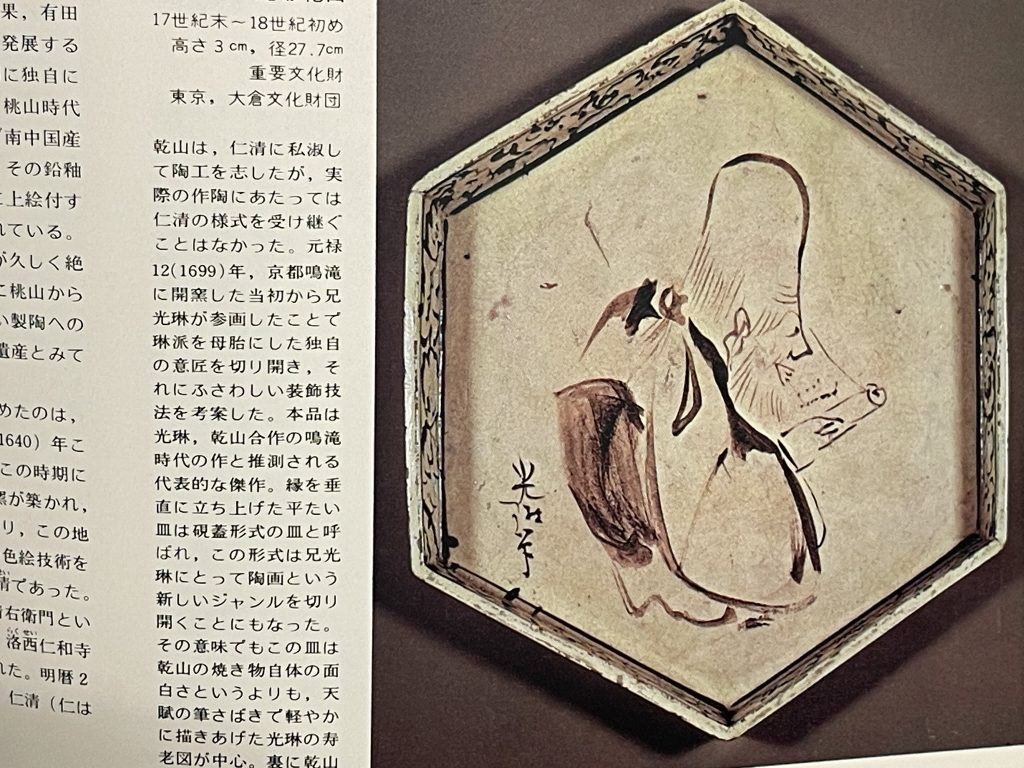 果，有田
発展する
に独自に
桃山時代
南中国産
その鉛釉
に上絵付す
れている。
が久しく絶
に桃山から
い製陶への
遺産とみて
めたのは，
1640）年こ
この時期に
窯が築かれ，
り，この地
色絵技術を
清であった。
右衛門とい
洛西仁和寺
れた。明暦2
仁清（仁は
17世紀末～18世紀初め
高さ3cm，径27.7cm
重要文化財
東京，大倉文化財団
乾山は，仁清に私淑し
て陶工を志したが，実
際の作陶にあたっては
仁清の様式を受け継ぐ
ことはなかった。元禄
12(1699)年，京都鳴滝
に開窯した当初から兄
光琳が参画したことで
琳派を母胎にした独自
の意匠を切り開き，そ
れにふさわしい装飾技
法を考案した。本品は
光琳，乾山合作の鳴滝
時代の作と推測される
代表的な傑作。縁を垂
直に立ち上げた平たい
皿は硯蓋形式の皿と呼
ばれ，この形式は兄光
琳にとって陶画という
新しいジャンルを切り
開くことにもなった。
その意味でもこの皿は
乾山の焼き物自体の面
白さというよりも，天
賦の筆さばきで軽やか
に描きあげた光琳の寿
老図が中心。裏に乾山